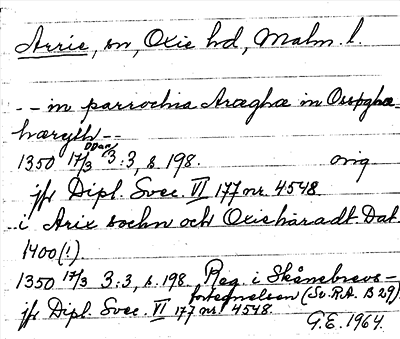 Arrie, sn, Oxie hd, Malm. l.
-- in parrochia Aræghæ in Osyghæ-
hæryth--
1350 17/3 DDan/3:3, s. 198. orig
jfr Dipl. Svec. VI 177 nr. 4548
..i Arix sochn och Oxiehäradt. Dat.
1400(!).
1350 17/3 3:3, s. 198. Reg. i Skånebrevs-
förteqnelsen (Sv. R.A. B 29).
jfr Dipl. Svec. VI 177 nr. 4548.
G.E. 1964.